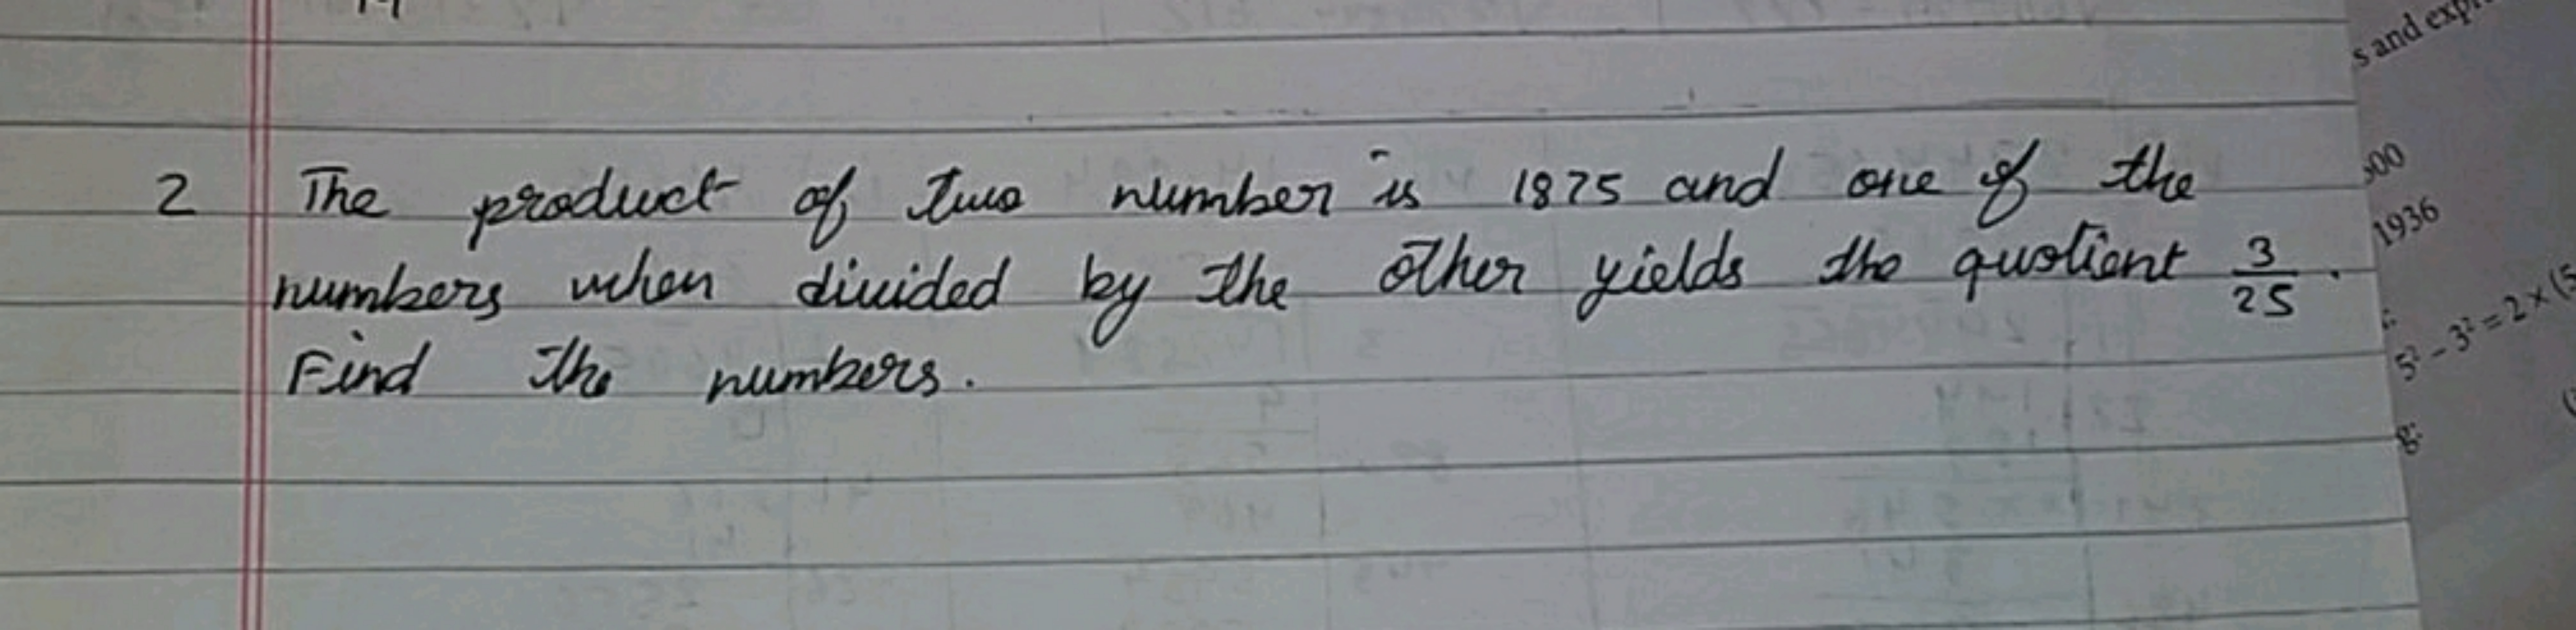 2 The product of two number is 1875 and one of the
numbers when divided by the other yields the quotient 3/25.
Find the numbers.
s and exp
00
1936
5² - 3² = 2 × (5
g: